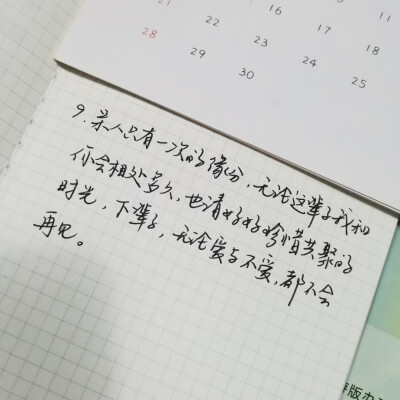 21 11
28 22 16 17 18
29 23 24 25
30
9. 亲人只有一次的缘分，无论这辈子我和
你会相处多久，也请好好珍惜共聚的
时光，下辈子，无论爱与不爱，都不会
再见。
版办